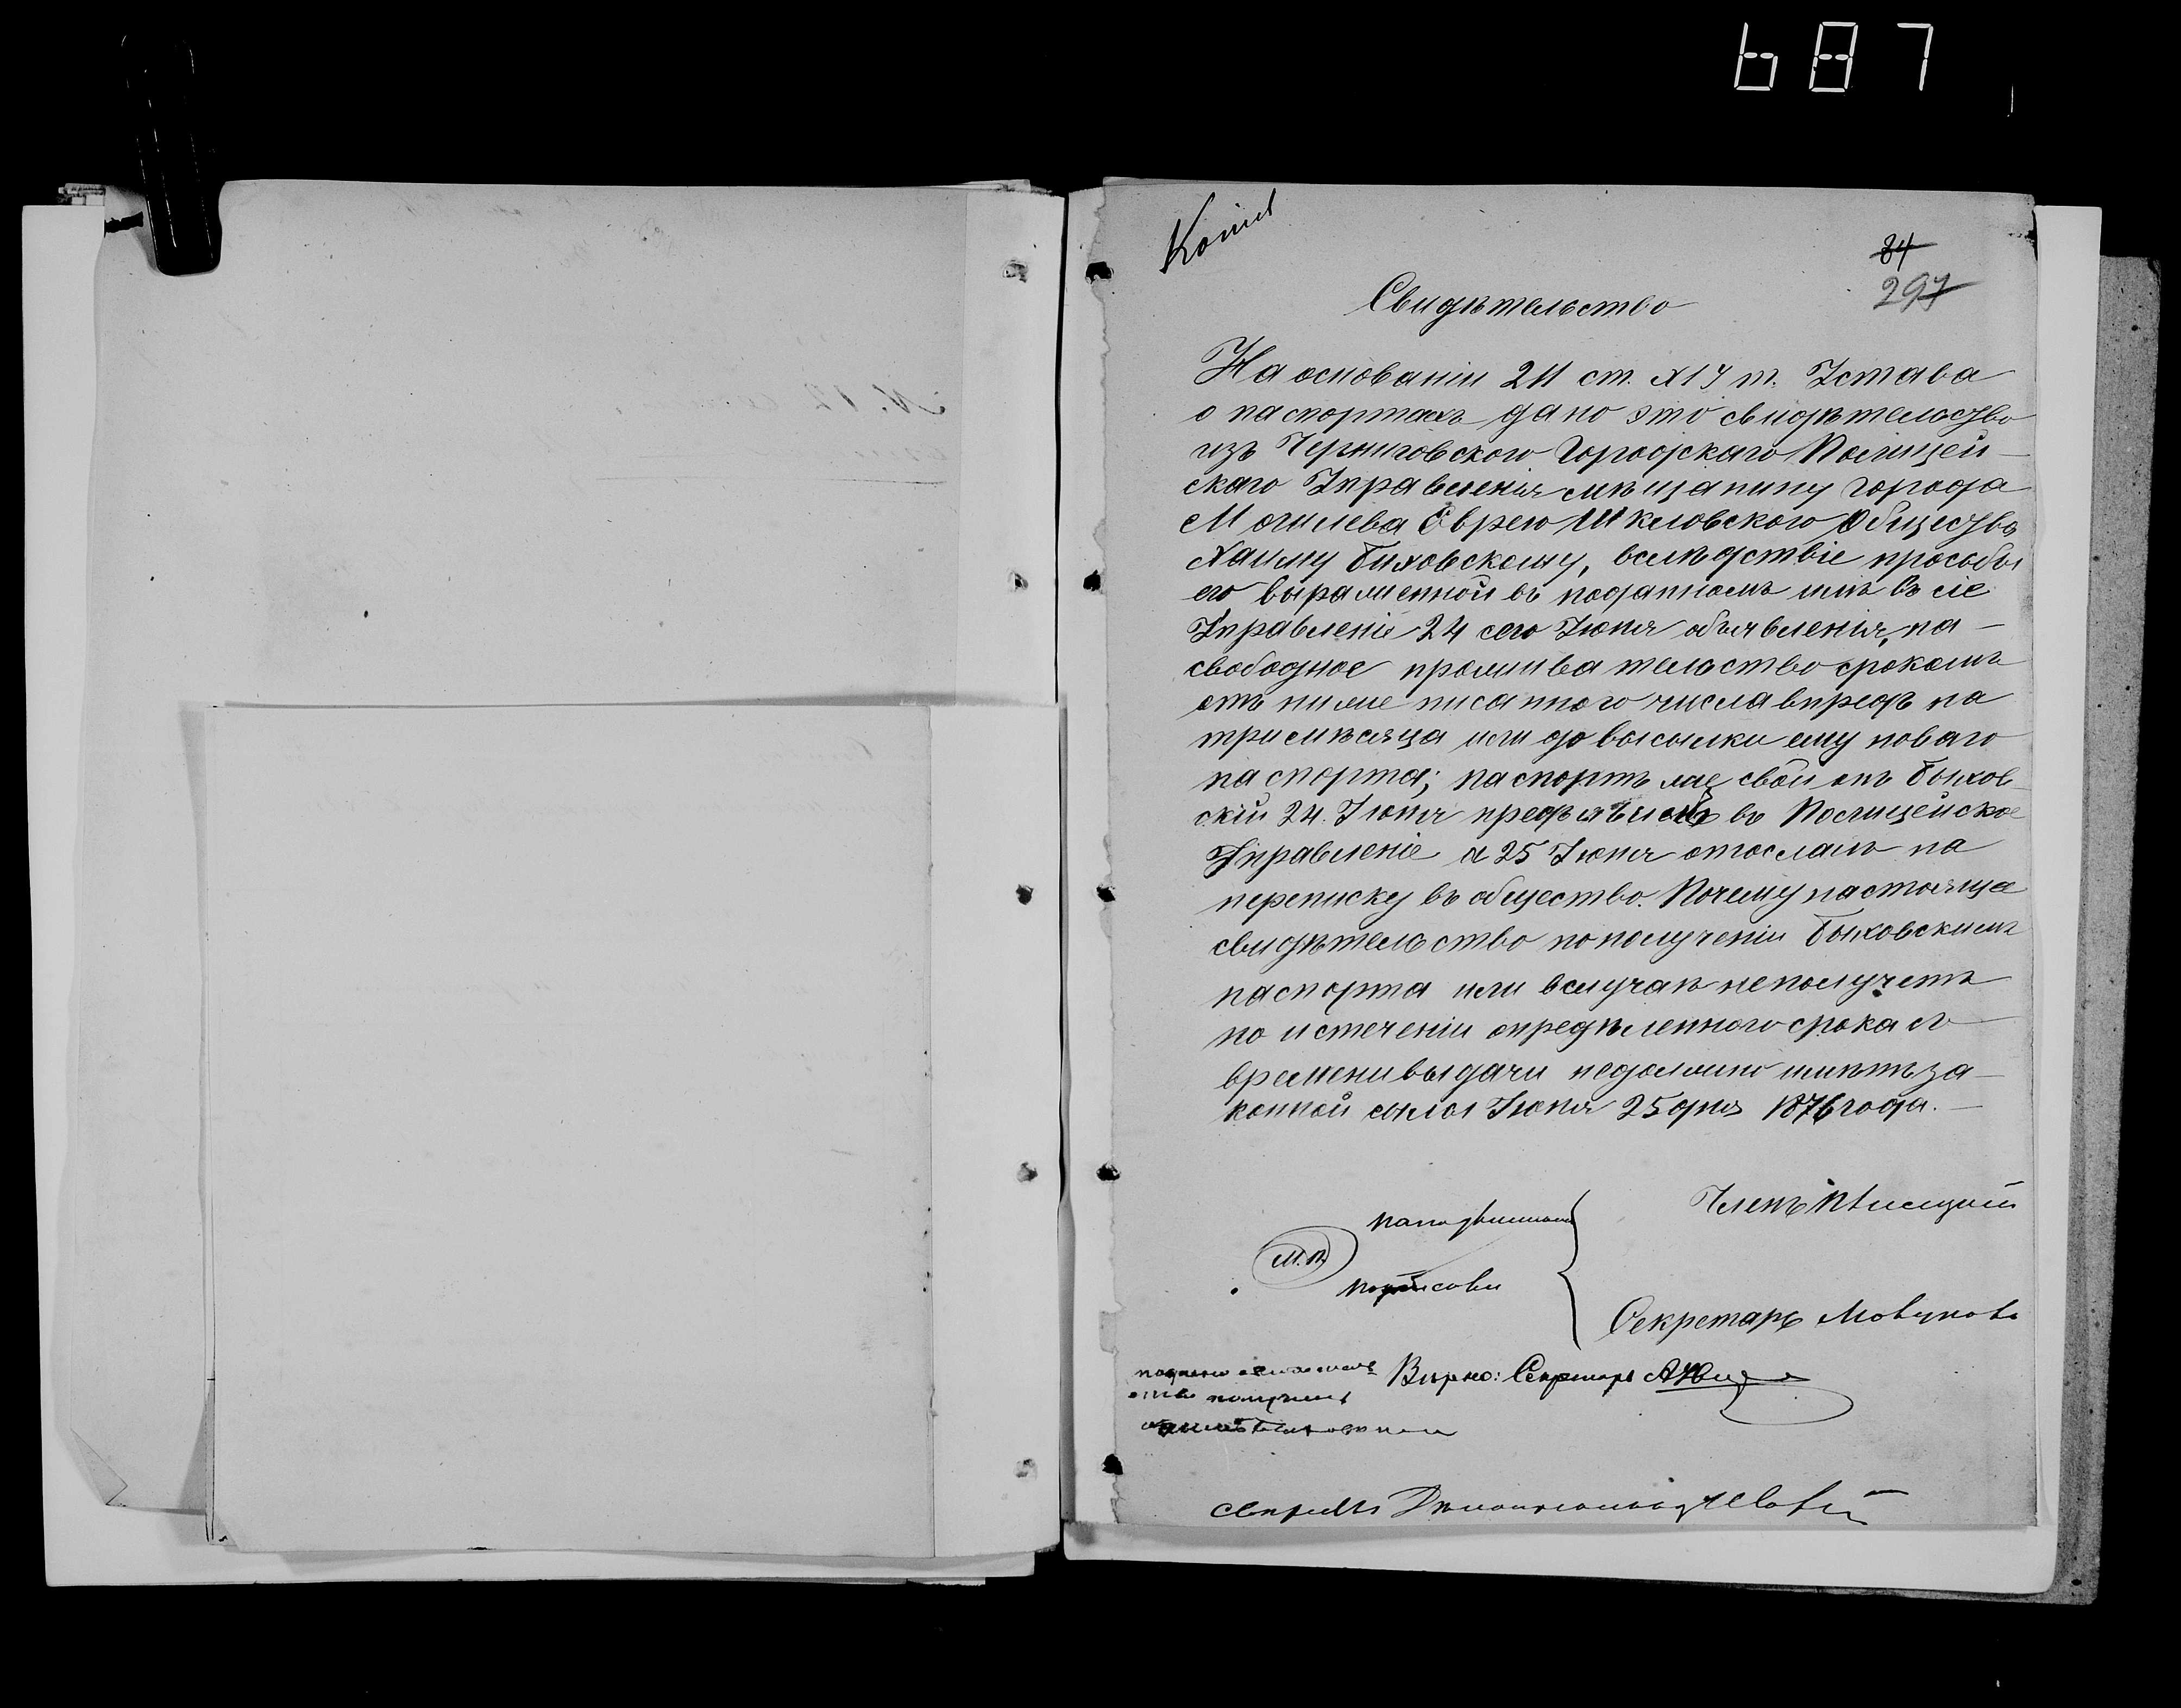 687
Копія
84
297
Свидѣтельство
На основаніи 211 ст. XIV т. Устава
о паспортахъ дано это свидѣтельство
изъ Черниговского Городскаго Полицей-
скаго Управленія мѣщанину города
Могилева Еврею Шкловского Общества
Хаиму Быховскому, вслѣдствіе просьбы
его выраженной въ поданномъ имъ въ сіе
Управленіе 24 сего Іюня объявленія, на-
свободное проживательство срокомъ
отъ ниже писанного числа впредь на
три мѣсяца или до высылки ему новаго
паспорта; паспортъ же свой онъ Быхов-
скій 24 Іюня предъявилъ въ Полицейское
Управленіе а 25 Іюня отосланъ на
переписку въ общество. Почему настояще
свидѣтельство по полученіи Быховскимъ
паспорта или вслучаѣ неполучетъ
по истеченіи опредѣленного срока съ
времени выдачи недолжно имѣть за-
конной силы Іюня 25 дня 1876 года.
Членъ
на подлинномъ
М.П.
подписали
Секретарь
Вѣрно: Секретарь
получилъ